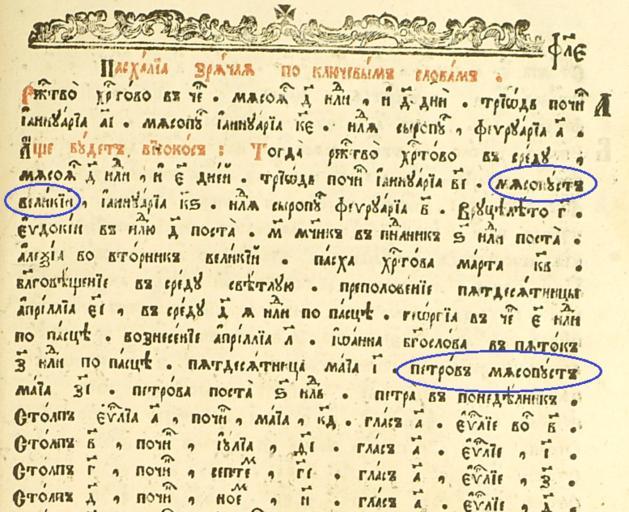 фл҃є
Пасха́лїа зрѧ́чаѧ по ключевы́мъ слова́мъ .
Ржⷭ҇тво̀ хрⷭ҇то́во въ че҃ . мѧсоѧ́ д҃ нⷣли , и҆ д҃ днѝ . трїѡ́дь почи́н А҆
і҆аннꙋа́рїа а҃і . мѧсопꙋ́ і҆аннꙋа́рїа к҃є . нⷣлѧ сыропꙋ́ , феврꙋа́рїа а҃ .
А҆́ще бꙋ́детъ високо́съ : Тогда̀ ржⷭ҇тво̀ хрⷭ҇то́во въ сре́дꙋ ,
мѧсоѧ́ д҃ нⷣли , и҆ є҃ дне́й . трїѡ́дь почи́н і҆аннꙋа́рїа в҃і . мѧсопꙋ́стъ
вели́кїи , і҆аннꙋа́рїа к҃ѕ . нⷣлѧ сыропꙋ́ феврꙋа́рїа в҃ . Врꙋцѣлѣ́то г҃ .
Е҆ѵдокі́и въ нⷣлю д҃ поста̀ . м҃ мч҃никъ въ пѧ́никъ ѕ҃ нⷣли поста̀ .
але́ѯїа во вто́рникъ вели́кїй . па́сха хрⷭ҇то́ва ма́рта к҃в .
бл҃гов́ѣщенїе въ сре́дꙋ свѣ́тлꙋю . преполове́нїе пѧтдесѧ́тницы
а҆прі́ллїа є҃і , въ сре́дꙋ д҃ ѧ нⷣли по па́сцѣ . геѡ́ргїа въ че҃ є҃ нⷣли
по па́сцѣ . вознесе́нїе а҆прі́ллїа л҃ . і҆ѡа́нна бг҃осло́ва въ пѧто́къ
з҃ нⷣли по па́сцѣ . пѧтдесѧ́тница ма́їа і҃ . петро́въ мѧсопꙋ́стъ
ма́їа з҃і . петро́ва поста̀ ѕ҃ нⷣль . петра̀ въ понедѣ́лникъ .
Сто́лпъ є҆ѵⷢ҇лїа а҃ , почи́н , ма́їа , к҃д . гла́съ а҃ . є҆ѵⷢ҇лїе во҆ в҃ .
Сто́лпъ в҃ , почи́н , і҆ꙋ́лїа , д҃і . гла́съ а҃ . є҆ѵⷢ҇лїе , і҃ .
Сто́лпъ г҃ , почи́н , септеⷨ , г҃і . гла́съ а҃ , є҆ѵⷢ҇лїе , з҃ .
Сто́лпъ д҃ , почи́н , ное́ⷨ , и҃ . гла́съ а҃ . є҆ѵⷢ҇лїе , д҃ .